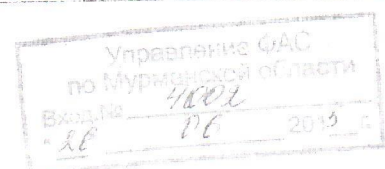 Управление ФАС
по Мурманской области
Вход.№ 4002
" 06 20 г.